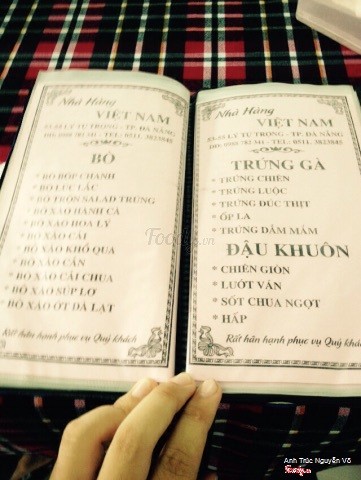 Nhà Hàng
VIỆT NAM
53-55 LÝ TỰ TRỌNG - TP. ĐÀ NẴNG
TEL: 0511. 3823845
BÒ
* BÒ BÓP CHANH
* BÒ LÚC LẮC
* BÒ TRỘN SALAD TRỨNG
* BÒ XÀO HÀNH CẢ
* BÒ XÀO HOA LÝ
* BÒ XÀO CẢI
* BÒ XÀO KHỔ QUA
* BÒ XÀO CẦN
* BÒ XÀO CẢI CHUA
* BÒ XÀO SÚP LƠ
* BÒ XÀO ỚT ĐÀ LẠT
Rất hân hạnh phục vụ Quý khách
Nhà Hàng
VIỆT NAM
53-55 LÝ TỰ TRỌNG - TP. ĐÀ NẴNG
TEL: 0511. 3823845
TRỨNG GÀ
* TRỨNG CHIÊN
* TRỨNG LUỘC
* TRỨNG ĐÚC THỊT
* ỐP LA
* TRỨNG DẦM MẮM
ĐẬU KHUÔN
* CHIÊN GIÒN
* LƯỚT VÁN
* SỐT CHUA NGỌT
* HẤP
Rất hân hạnh phục vụ Quý khách
Foody.vn
Anh Trúc Nguyễn Võ
Foody.vn